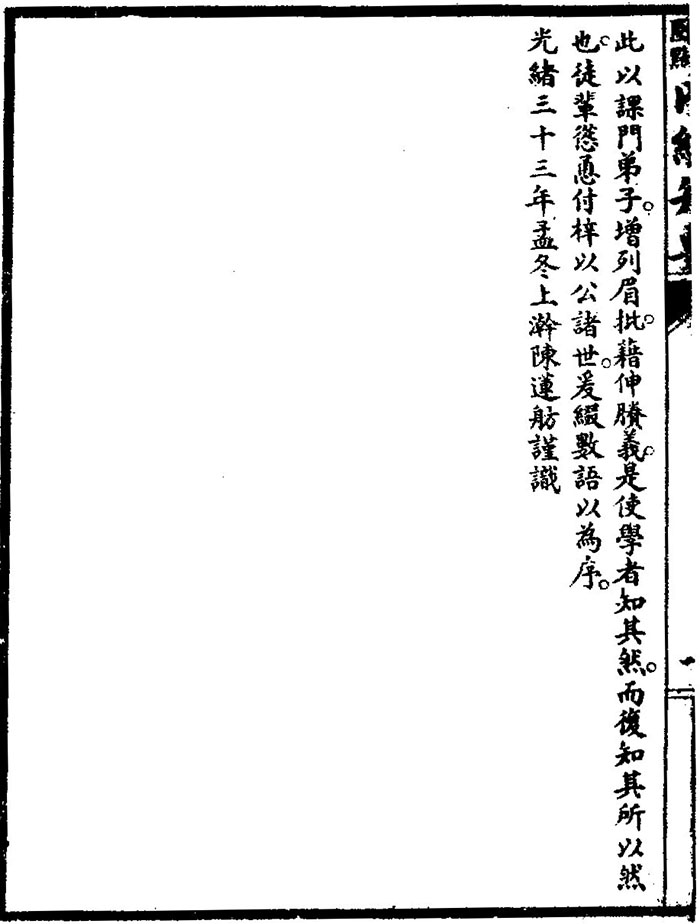 此以課門弟子。增列眉批。藉伸賸義。是使學者知其然。而復知其所以然
也。徒輩慫恿付梓以公諸世。爰綴數語以為序。
光緒三十三年孟冬上澣陳蓮舫謹識